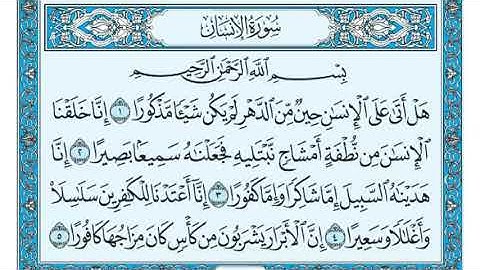 سُورَةُ الإِنسَانِ
بِسْمِ اللَّهِ الرَّحْمَٰنِ الرَّحِيمِ
هَلْ أَتَىٰ عَلَى الْإِنسَٰنِ حِينٌ مِّنَ الدَّهْرِ لَمْ يَكُن شَيْئًا مَّذْكُورًا ١ إِنَّا خَلَقْنَا
الْإِنسَٰنَ مِن نُّطْفَةٍ أَمْشَاجٍ نَّبْتَلِيهِ فَجَعَلْنَٰهُ سَمِيعًا بَصِيرًا ٢ إِنَّا
هَدَيْنَٰهُ السَّبِيلَ إِمَّا شَاكِرًا وَإِمَّا كَفُورًا ٣ إِنَّا أَعْتَدْنَا لِلْكَٰفِرِينَ سَلَٰسِلَا۟
وَأَغْلَٰلًا وَسَعِيرًا ٤ إِنَّ الْأَبْرَارَ يَشْرَبُونَ مِن كَأْسٍ كَانَ مِزَاجُهَا كَافُورًا ٥